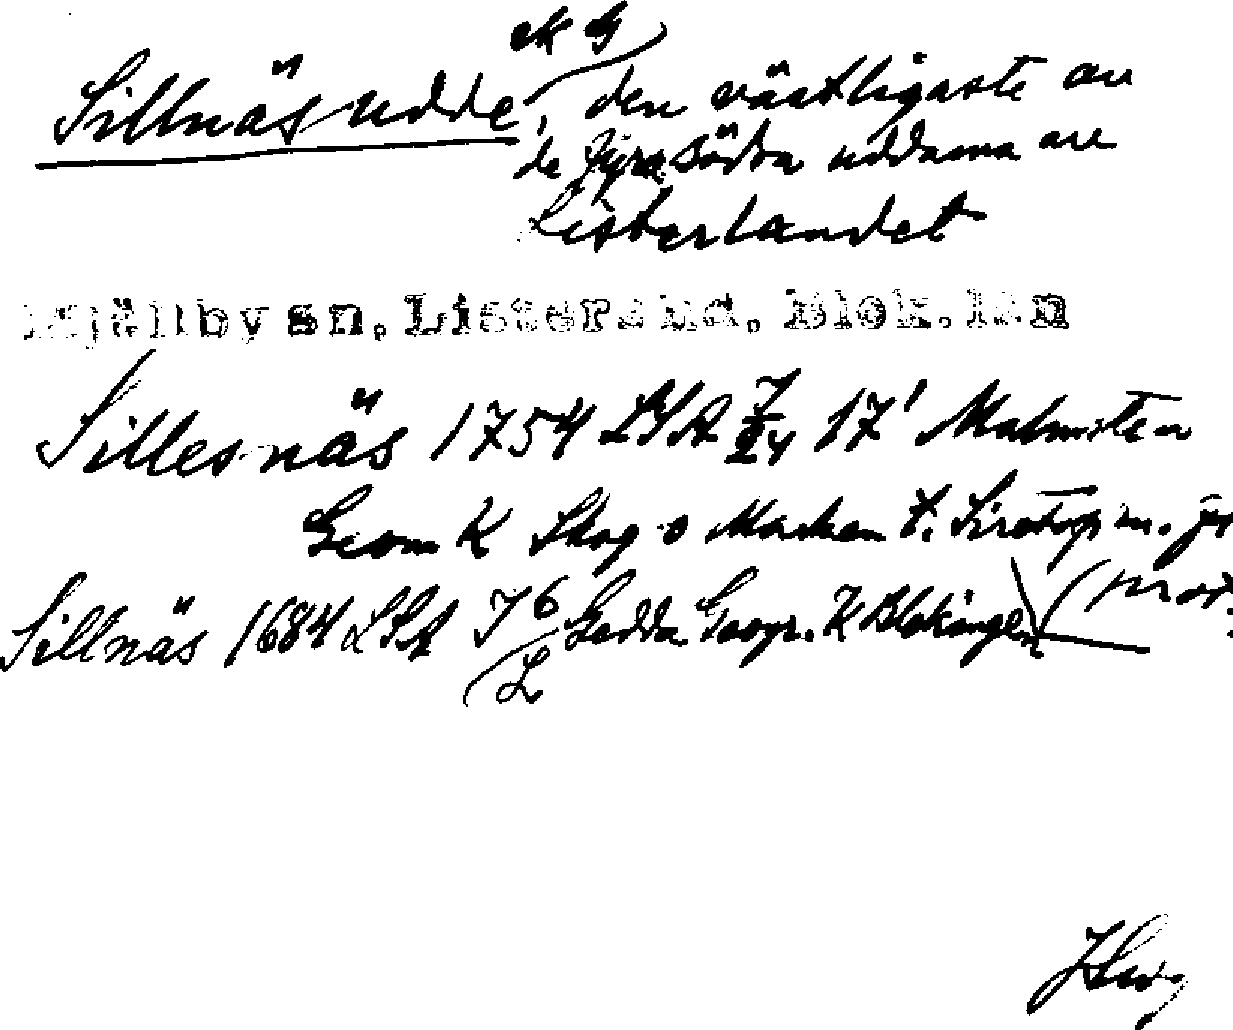 ek G
Sillnäs udde, den västligaste av
de fyra södra uddarna av
Listerlandet
Mjällby sn, Listers hd, Blek. län
Sillesnäs 1754 LSA 17' Malmsten
Geom K Skog o Marken t.
Sillnäs 1684 LSA Gedda Geogr. K Blekingen